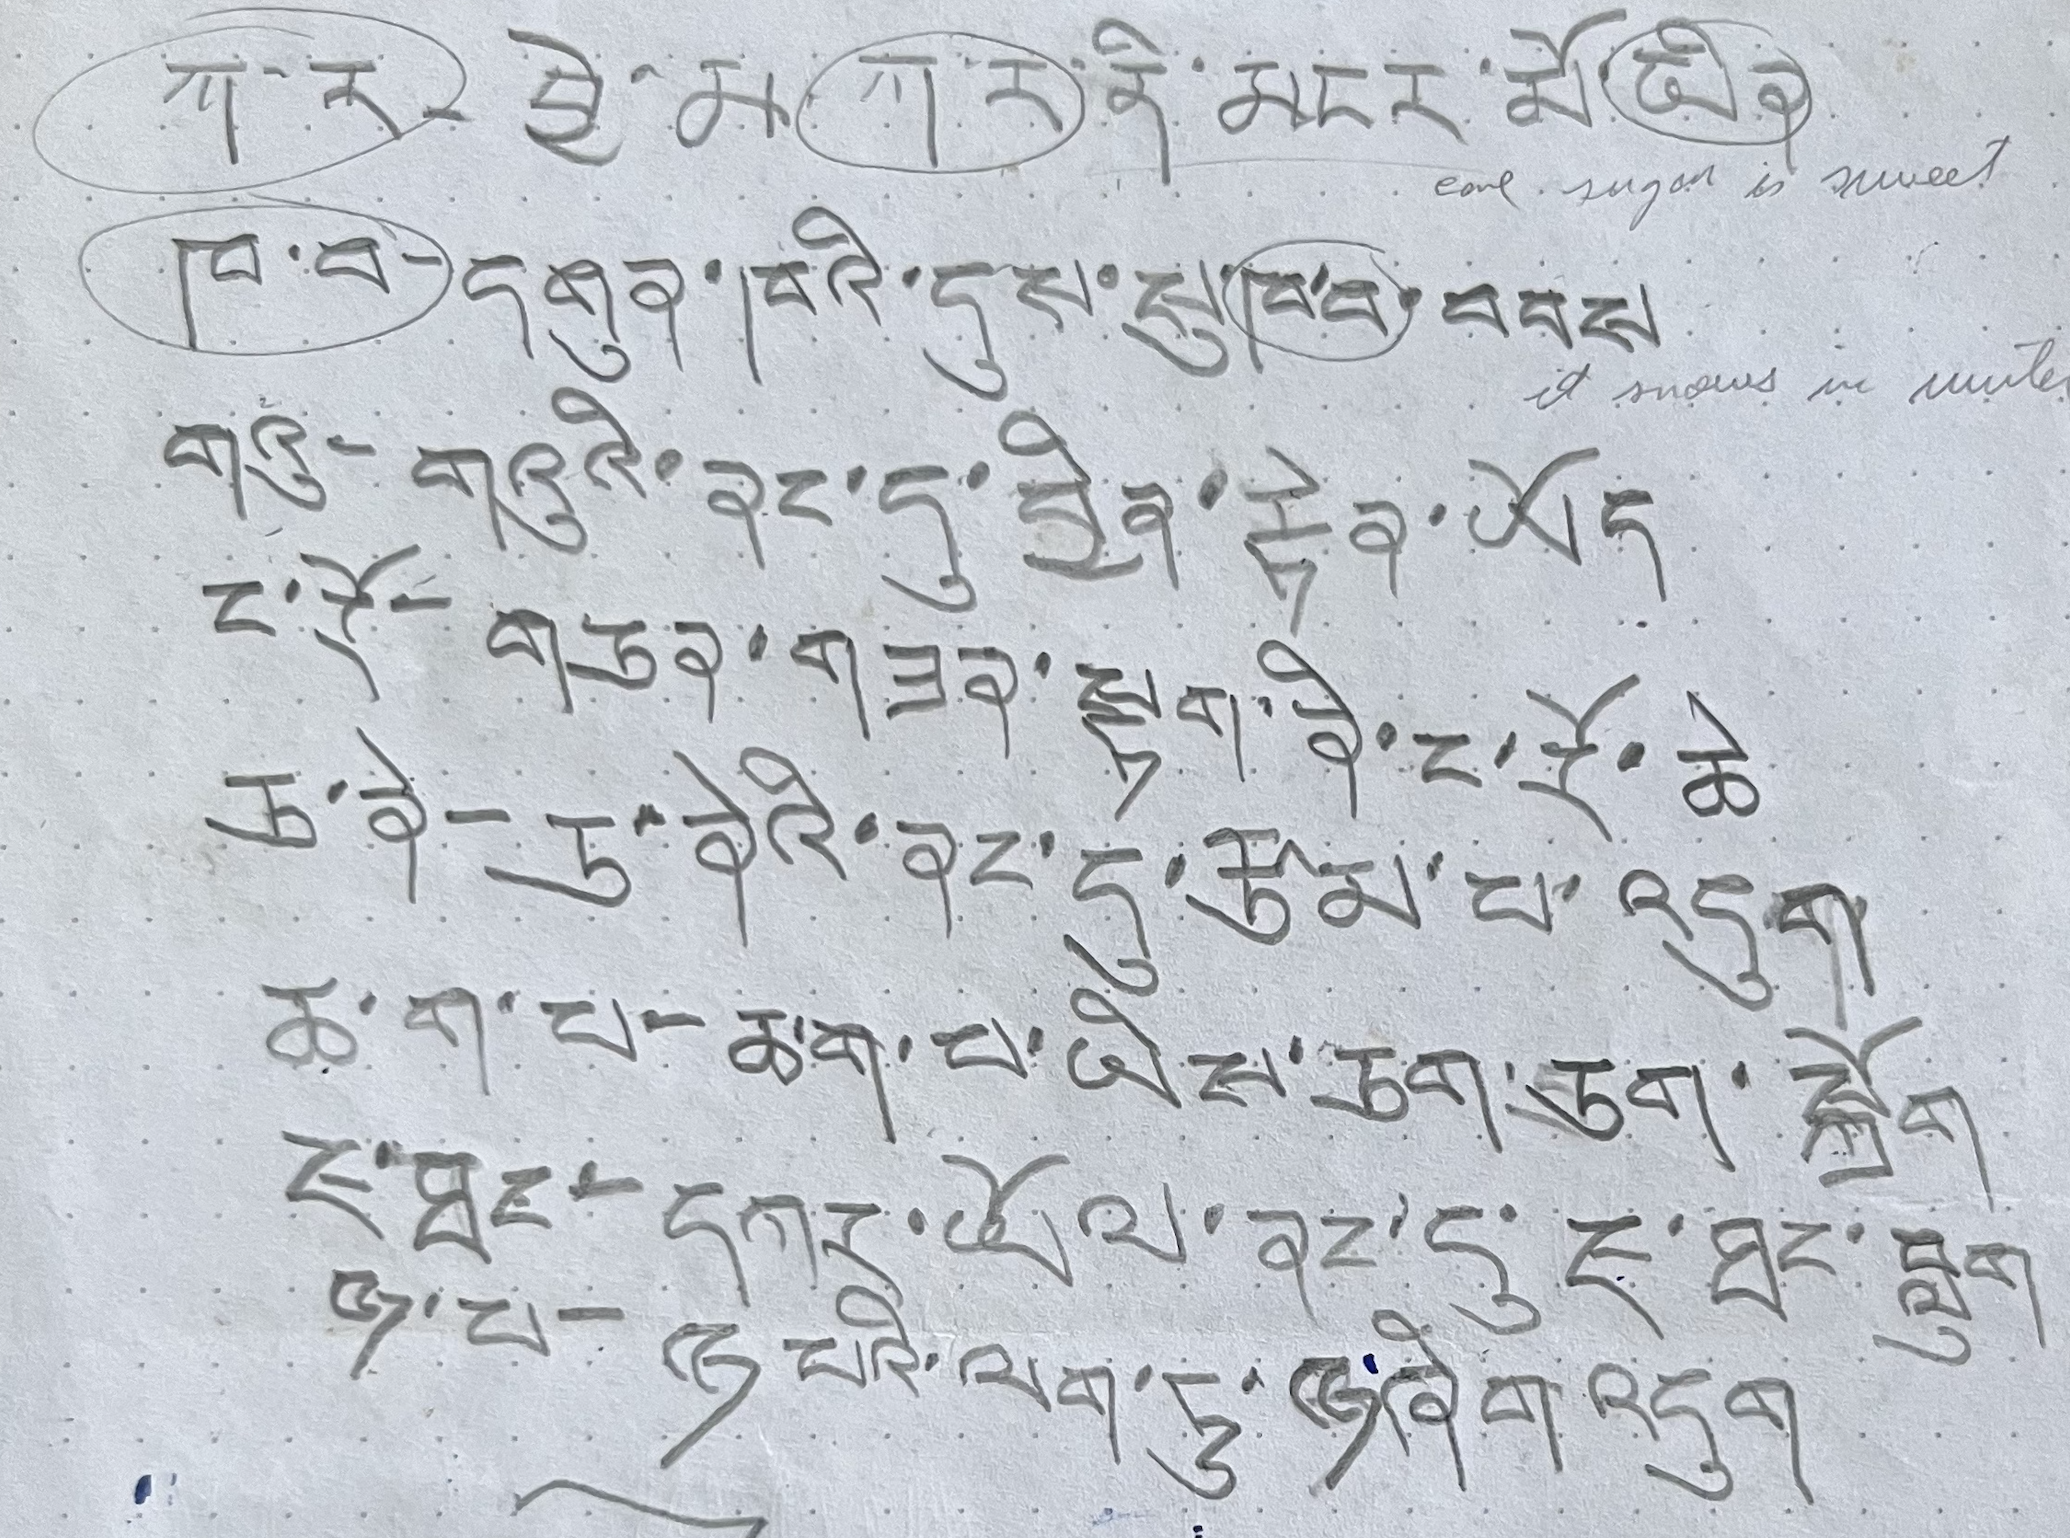 ཀ་ར - བྱེ་མ་ཀ་ར་ནི་མངར་མོ་ཡིན
cane sugar is sweet
ཁ་བ - དགུན་ཁའི་དུས་སུ་ཁ་བ་བབས
it snows in winter
གའུ - གའུའི་ནང་དུ་བྱིན་རྟེན་ཡོད
ང་རོ - གཅན་གཟན་སྟག་ནི་ང་རོ་ཆེ
ཅ་ནེ - ཅ་ནེའི་ནང་དུ་རྩམ་པ་འདུག
ཆ་ག་པ - ཆ་ག་པ་ཡིས་ཅག་ཅག་སྒྲོག
ཇ་ཐང - དཀར་ཡོལ་ནང་དུ་ཇ་ཐང་བླུག
ཉ་པ - ཉ་པའི་ལག་ཏུ་ཉ་ཞིག་འདུག